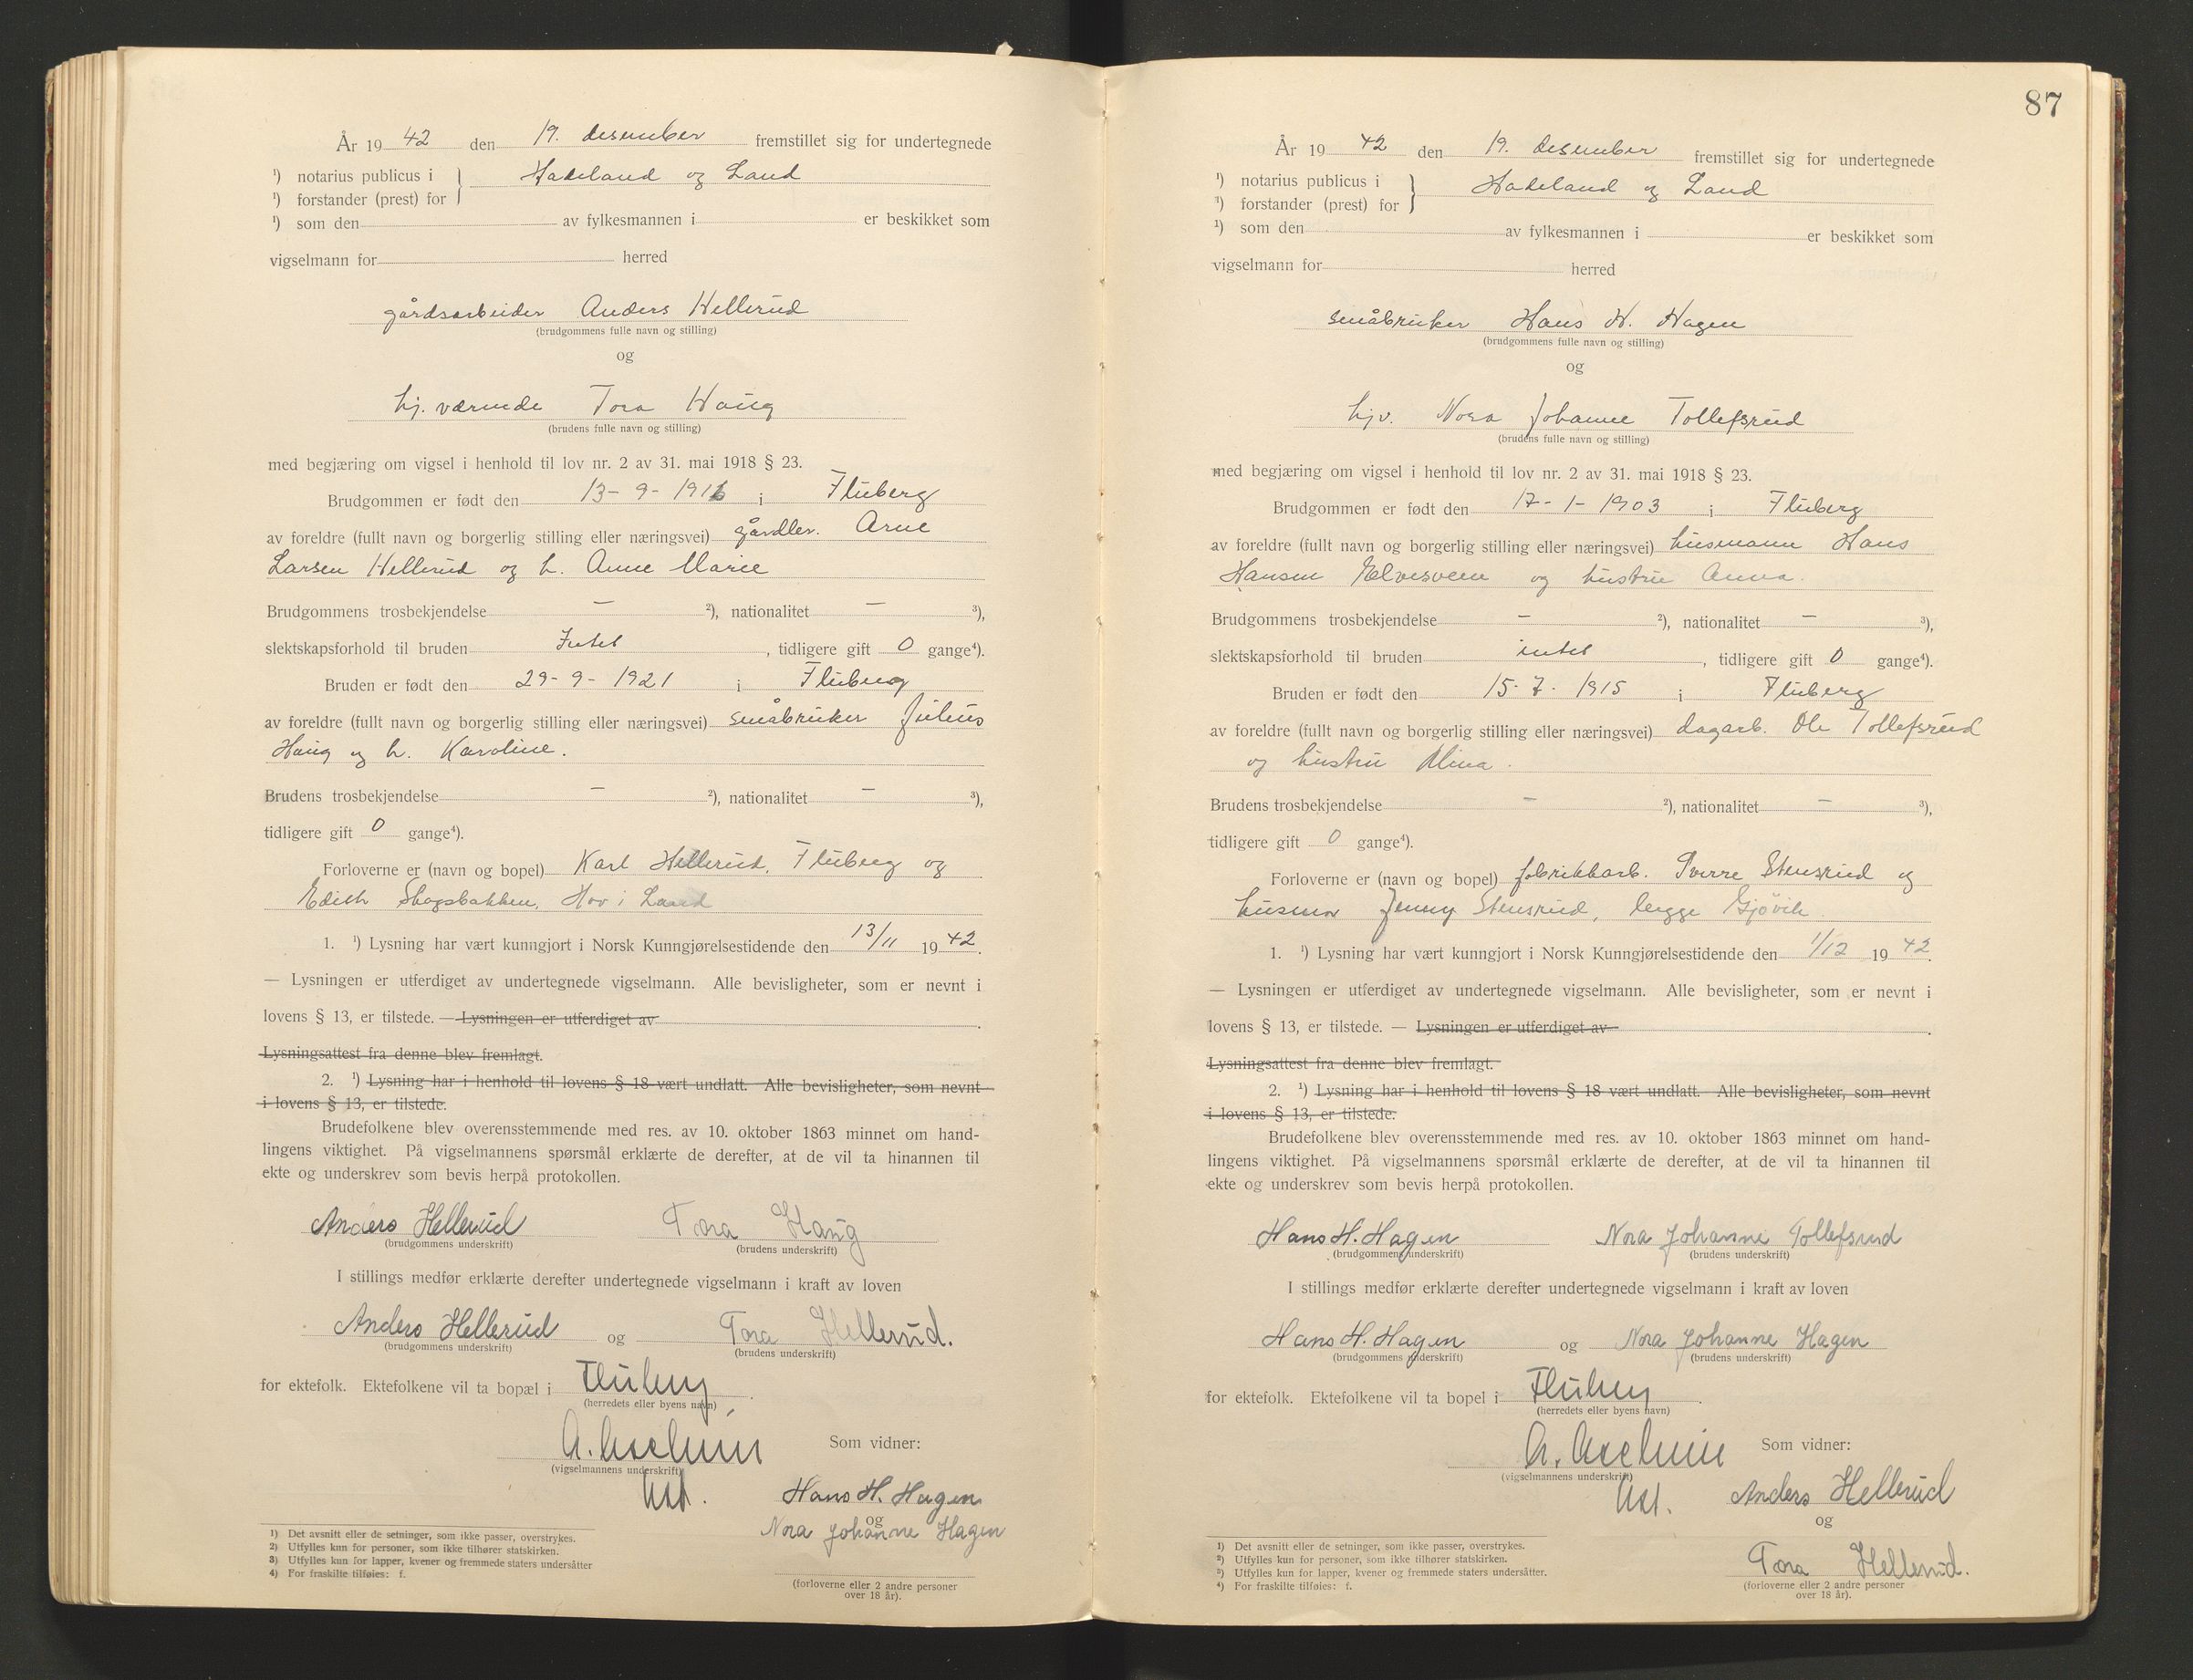 År 19 42 den 19. desember fremstillet sig for undertegnede
¹) notarius publicus i } Hadeland og Land
¹) forstander (prest) for
¹) som den av fylkesmannen i er beskikket som
vigselmann for herred
gårdsarbeider Anders Hellerud
(brudgommens fulle navn og stilling)
og
hj. værende Tora Haug
(brudens fulle navn og stilling)
med begjæring om vigsel i henhold til lov nr. 2 av 31. mai 1918 § 23.
Brudgommen er født den 13-9-1916 i Fluberg
av foreldre (fullt navn og borgerlig stilling eller næringsvei) gårdbr. Arne
Larsen Hellerud og h. Anne Marie
Brudgommens trosbekjendelse — ²), nationalitet — ³),
slektskapsforhold til bruden Intet, tidligere gift 0 gange⁴).
Bruden er født den 29-9-1921 i Fluberg
av foreldre (fullt navn og borgerlig stilling eller næringsvei) småbruker Julius
Haug og h. Karoline.
Brudens trosbekjendelse — ²), nationalitet — ³),
tidligere gift 0 gange⁴).
Forloverne er (navn og bopel) Karl Hellerud, Fluberg og
Edith Skogsbakken, Hov i Land
1. ¹) Lysning har vært kunngjort i Norsk Kunngjørelsestidende den 13/11 19 42.
— Lysningen er utferdiget av undertegnede vigselmann. Alle bevisligheter, som er nevnt i
lovens § 13, er tilstede. — Lysningen er utferdiget av .
Lysningsattest fra denne blev fremlagt.
2. ¹) Lysning har i henhold til lovens § 18 vært undlatt. Alle bevisligheter, som nevnt
i lovens § 13, er tilstede.
Brudefolkene blev overensstemmende med res. av 10. oktober 1863 minnet om hand-
lingens viktighet. På vigselmannens spørsmål erklærte de derefter, at de vil ta hinannen til
ekte og underskrev som bevis herpå protokollen.
Anders Hellerud Tora Haug
(brudgommens underskrift) (brudens underskrift)
I stillings medfør erklærte derefter undertegnede vigselmann i kraft av loven
Anders Hellerud og Tora Hellerud.
(brudgommens underskrift) (brudens underskrift)
for ektefolk. Ektefolkene vil ta bopæl i Fluberg.
(herredets eller byens navn)
A. Som vidner:
(vigselmannens underskrift)
Hans H. Hagen
og
Nora Johanne Hagen
(forloverne eller 2 andre personer
over 18 år).
1) Det avsnitt eller de setninger, som ikke passer, overstrykes.
2) Utfylles kun for personer, som ikke tilhører statskirken.
3) Utfylles kun for lapper, kvener og fremmede staters undersåtter
4) For fraskilte tilføies: f.
87
År 19 42 den 19. desember fremstillet sig for undertegnede
¹) notarius publicus i } Hadeland og Land
¹) forstander (prest) for
¹) som den av fylkesmannen i er beskikket som
vigselmann for herred
småbruker Hans H. Hagen
(brudgommens fulle navn og stilling)
og
hjv. Nora Johanne Tollefsrud
(brudens fulle navn og stilling)
med begjæring om vigsel i henhold til lov nr. 2 av 31. mai 1918 § 23.
Brudgommen er født den 17-1-1903 i Fluberg
av foreldre (fullt navn og borgerlig stilling eller næringsvei) husmann Hans
Hansen Elvesveen og hustru Anna.
Brudgommens trosbekjendelse — ²), nationalitet — ³),
slektskapsforhold til bruden intet, tidligere gift 0 gange⁴).
Bruden er født den 15-7-1915 i Fluberg
av foreldre (fullt navn og borgerlig stilling eller næringsvei) dagarb. Ole Tollefsrud
og hustru Alina.
Brudens trosbekjendelse — ²), nationalitet — ³),
tidligere gift 0 gange⁴).
Forloverne er (navn og bopel) fabrikkarb. Sverre Stensrud og
husmor Jenny Stensrud, begge Gjøvik
1. ¹) Lysning har vært kunngjort i Norsk Kunngjørelsestidende den 1/12 19 42.
— Lysningen er utferdiget av undertegnede vigselmann. Alle bevisligheter, som er nevnt i
lovens § 13, er tilstede. — Lysningen er utferdiget av .
Lysningsattest fra denne blev fremlagt.
2. ¹) Lysning har i henhold til lovens § 18 vært undlatt. Alle bevisligheter, som nevnt
i lovens § 13, er tilstede.
Brudefolkene blev overensstemmende med res. av 10. oktober 1863 minnet om hand-
lingens viktighet. På vigselmannens spørsmål erklærte de derefter, at de vil ta hinannen til
ekte og underskrev som bevis herpå protokollen.
Hans H. Hagen Nora Johanne Tollefsrud
(brudgommens underskrift) (brudens underskrift)
I stillings medfør erklærte derefter undertegnede vigselmann i kraft av loven
Hans H. Hagen og Nora Johanne Hagen
(brudgommens underskrift) (brudens underskrift)
for ektefolk. Ektefolkene vil ta bopel i Fluberg.
(herredets eller byens navn)
A. Som vidner:
(vigselmannens underskrift)
Anders Hellerud
og
Tora Hellerud.
(forloverne eller 2 andre personer
over 18 år).
¹) Det avsnitt eller de setninger, som ikke passer, overstrykes.
²) Utfylles kun for personer, som ikke tilhører statskirken.
³) Utfylles kun for lapper, kvener og fremmede staters undersåtter.
⁴) For fraskilte tilføies: f.